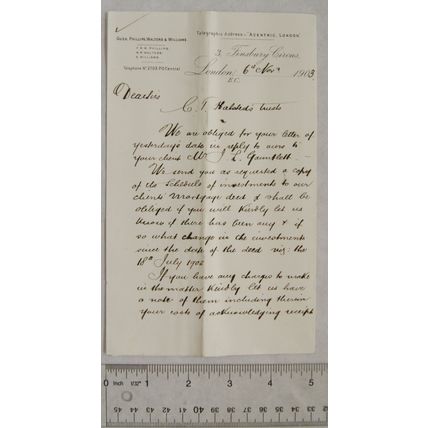 Gush, Phillips, Walters & Williams
Telegraphic Address "Agentric, London"
Telephone No 2703 P.O. Central
3, Finsbury Circus,
London, 6th Novr 1903
E.C.
Dear Sirs
C. T. Halsted's trusts
We are obliged for your letter of
yesterday's date in reply to ours to
your client Mr J. L. Gauntlett.
We send you as requested a copy
of the Schedule of investments to our
clients' mortgage deed & shall be
obliged if you will kindly let us
know if there has been any & if
so what change in the investments
since the date of the deed viz: the
18th July 1902
If you have any charges to make
in the matter kindly let us have
a note of them including therein
your costs of acknowledging receipt
0 Inch 1/32" 1 2 3 4 5